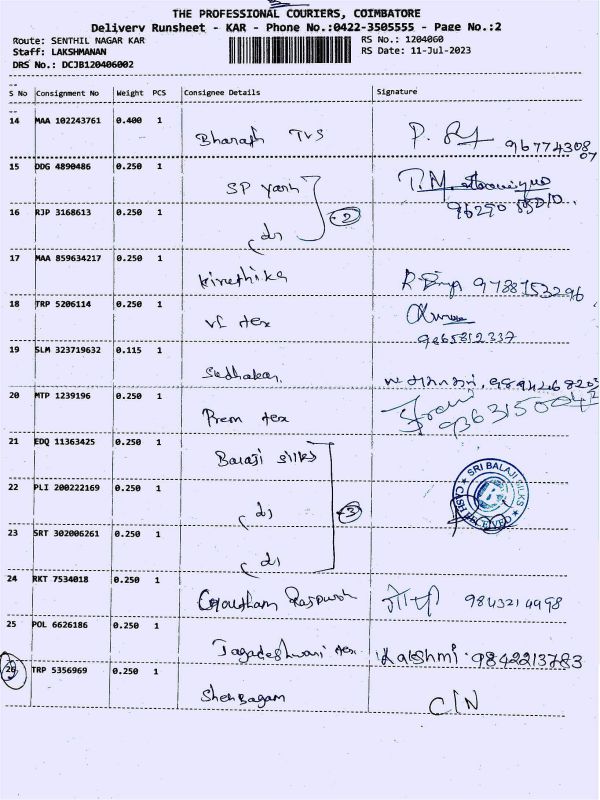 THE PROFESSIONAL COURIERS, COIMBATORE
Delivery Runsheet - KAR - Phone No.:0422-3505555 - Page No.:2
Route: SENTHIL NAGAR KAR
RS No.: 1204060
Staff: LAKSHMANAN
RS Date: 11-Jul-2023
DRS No.: DCJB120406002
S No Consignment No Weight PCS Consignee Details Signature
14 MAA 102243761 0.400 1 Bharath TVS
15 DDG 4890486 0.250 1 SP yarn
16 RJP 3168613 0.250 1 (ds 2
17 MAA 859634217 0.250 1 Kiruthika 9788753296
18 TRP 5206114 0.250 1 VL tex
9865812337
19 SLM 323719632 0.115 1 Sudhakar
20 MTP 1239196 0.250 1 Prem tex
21 EDQ 11363425 0.250 1 Balaji silks
SRI BALAJI SILKS
CASH RECEIVED
22 PLI 200222169 0.250 1 (ds 3
23 SRT 302006261 0.250 1 (ds
24 RKT 7534018 0.250 1 Goutham 9843214998
25 POL 6626186 0.250 1 Jagadeshwari tex Lakshmi. 9842213783
26 TRP 5356969 0.250 1 Shenbagam C/N